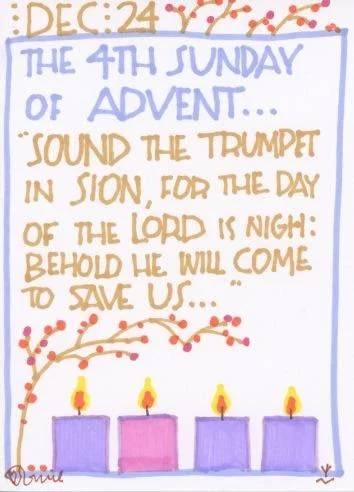 :DEC:24
THE 4TH SUNDAY
OF ADVENT...
"SOUND THE TRUMPET
IN SION, FOR THE DAY
OF THE LORD IS NIGH:
BEHOLD HE WILL COME
TO SAVE US..."